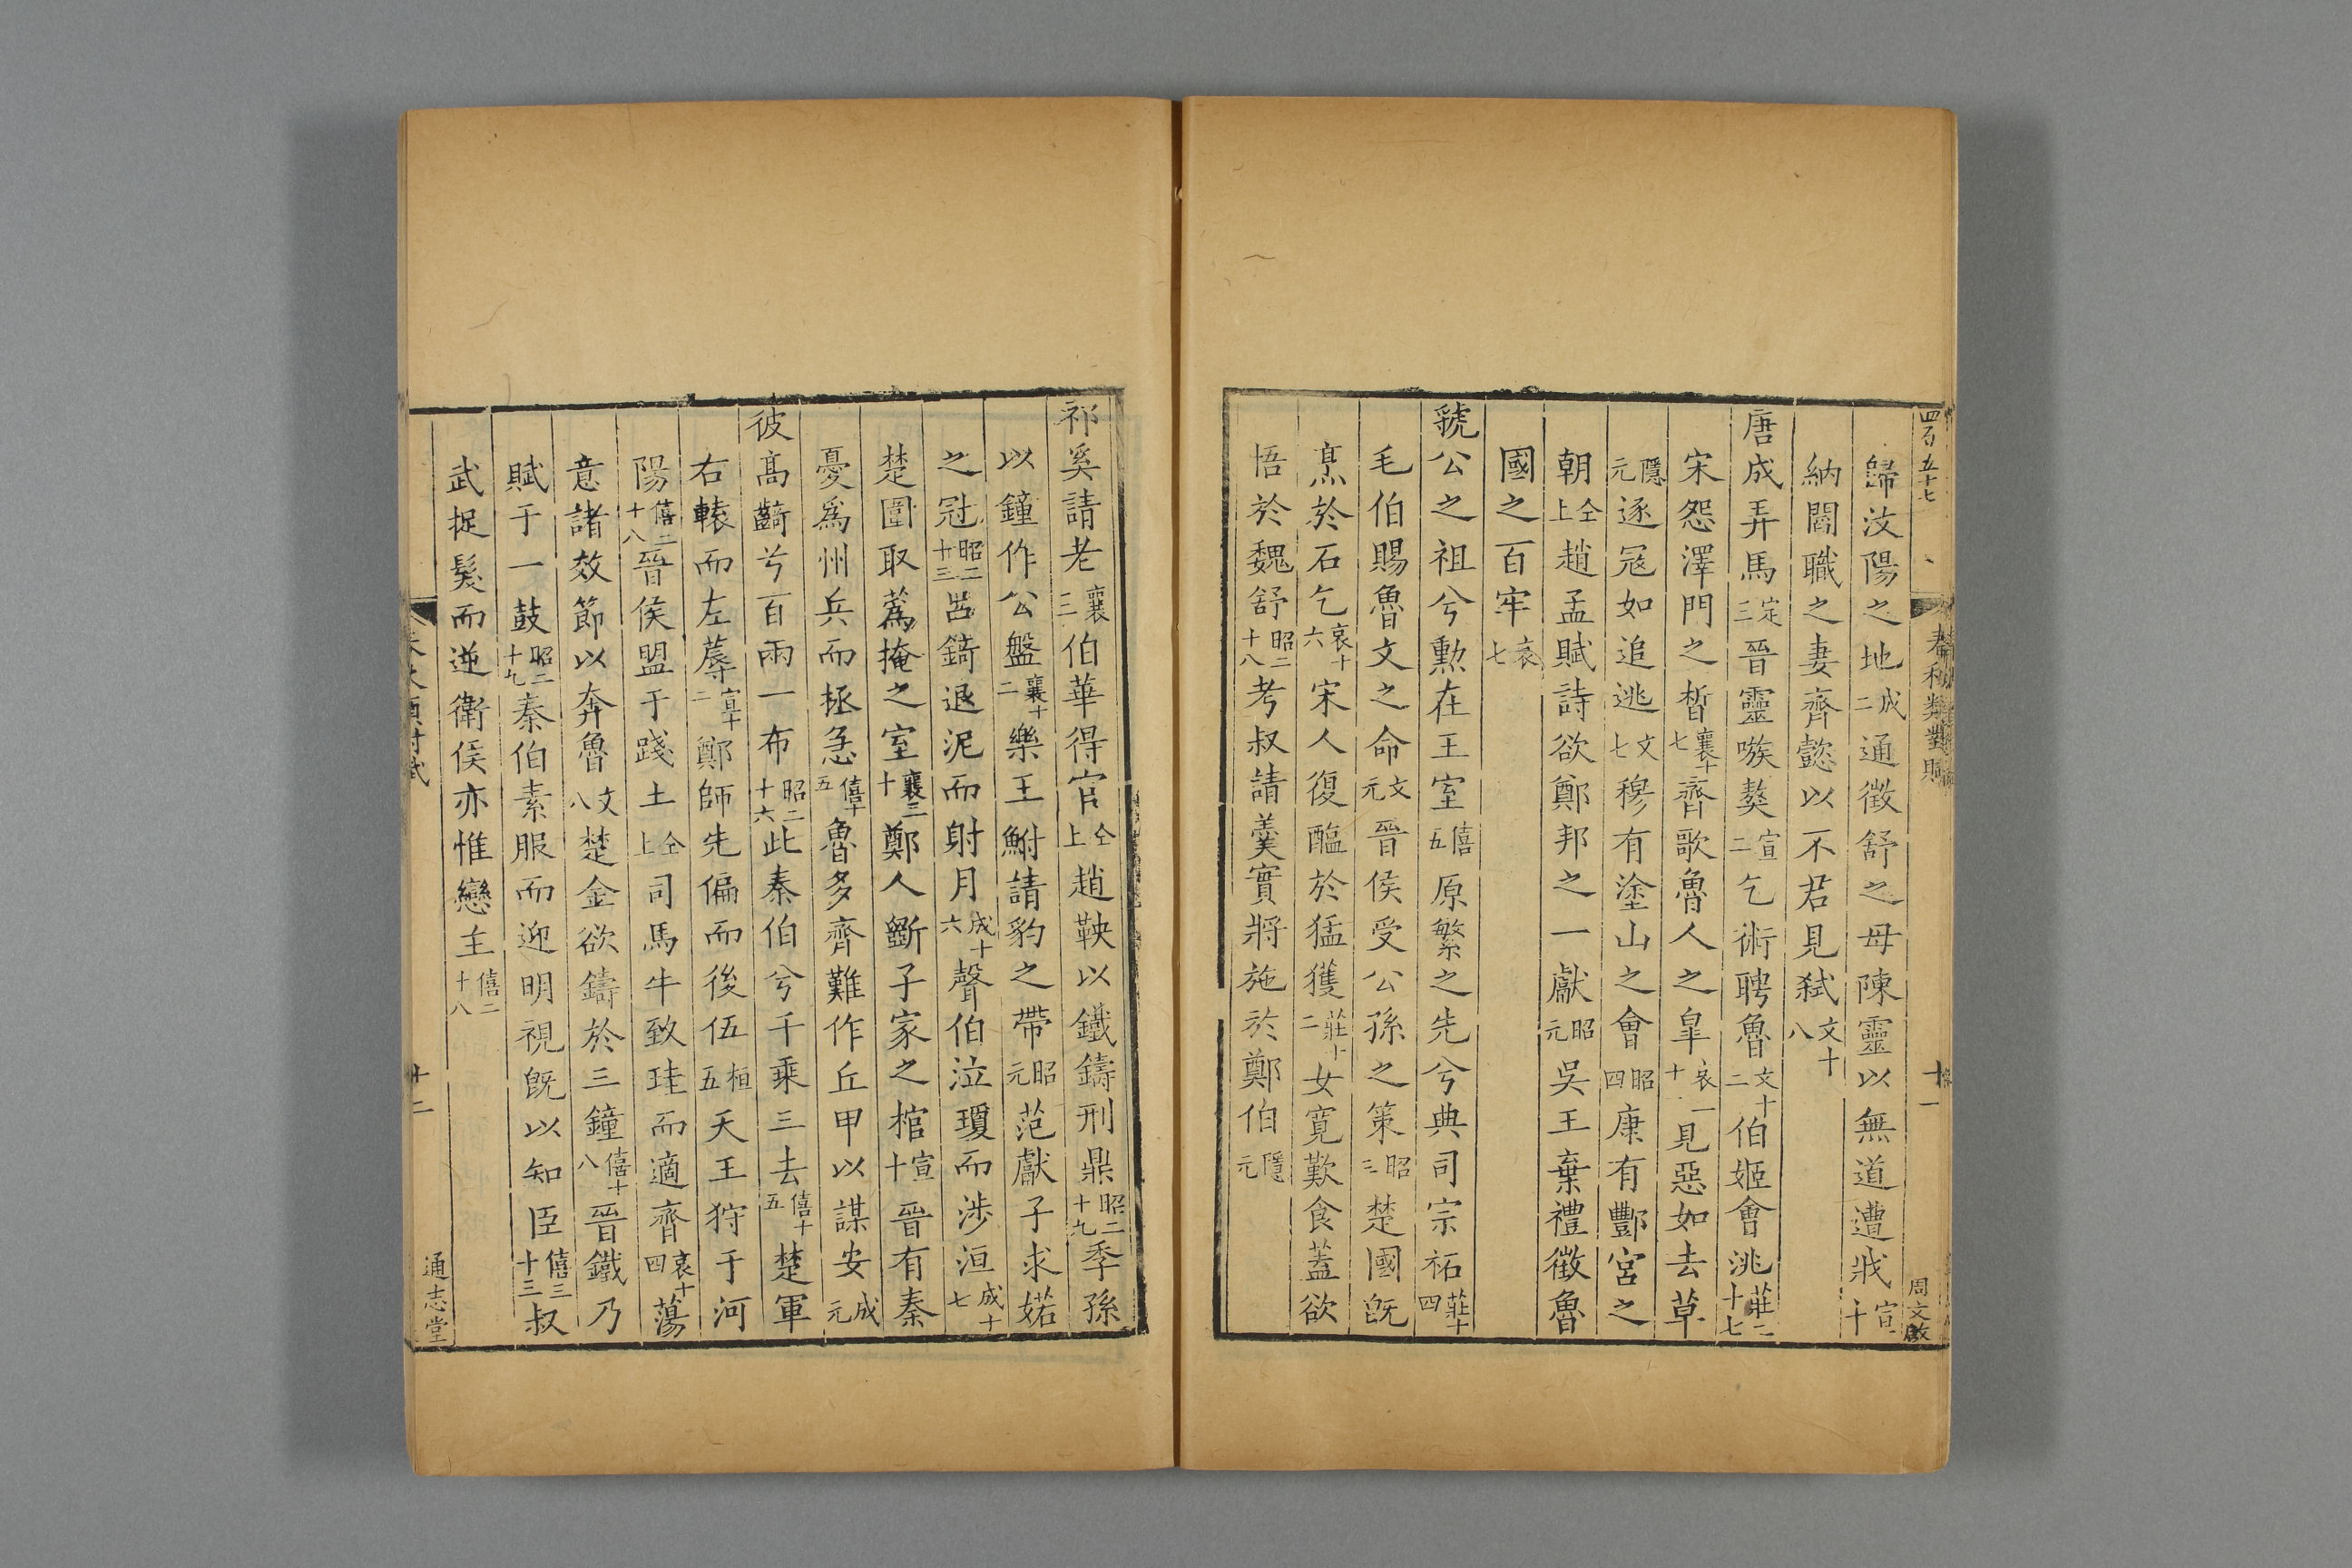 四百五十七 春秋類對賦 十一 周文啟
歸汶陽之地成二通徵舒之母陳靈以無道遭戕宣十
納閻職之妻齊懿以不君見弒文十八
唐成弄馬定三晉靈嗾獒宣二乞術聘魯文十二伯姬會洮莊二十七
宋怨澤門之晳襄十七齊歌魯人之臯哀十一見惡如去草
隱元逐冦如追逃文七穆有塗山之會昭四康有酆宮之
朝仝上趙孟賦詩欲鄭邦之一獻昭元吳王棄禮徵魯
國之百牢哀七
虢公之祖兮勲在王室僖五原繁之先兮典司宗祏莊十四
毛伯賜魯文之命文元晉侯受公孫之策昭三楚國旣
烹於石乞哀十六宋人復醢於猛獲莊十二女寛歎食蓋欲
悟於魏舒昭二十八考叔請羹實將施於鄭伯隱元
祁奚請老襄三伯華得官仝上趙鞅以鐵鑄刑鼎昭二十九季孫
以鐘作公盤襄十二樂王鮒請豹之帶昭元范獻子求婼
之冠昭二十三呂錡退泥而射月成十六聲伯泣瓊而涉洹成十七
楚圍取蒍掩之室襄三十鄭人斷子家之棺宣十晉有秦
憂爲州兵而拯急僖十五魯多齊難作丘甲以謀安成元
彼高齮兮百兩一布昭二十六此秦伯兮千乘三去僖十五楚軍
右轅而左蓐宣十二鄭師先偏而後伍桓五天王狩于河
陽僖二十八晉侯盟于踐土仝上司馬牛致珪而適齊哀十四蕩
意諸效節以奔魯文八楚金欲鑄於三鐘僖十八晉鐵乃
賦于一鼓昭二十九秦伯素服而迎明視旣以知臣僖三十三叔
武捉髮而逆衛侯亦惟戀主僖二十八
十二 通志堂